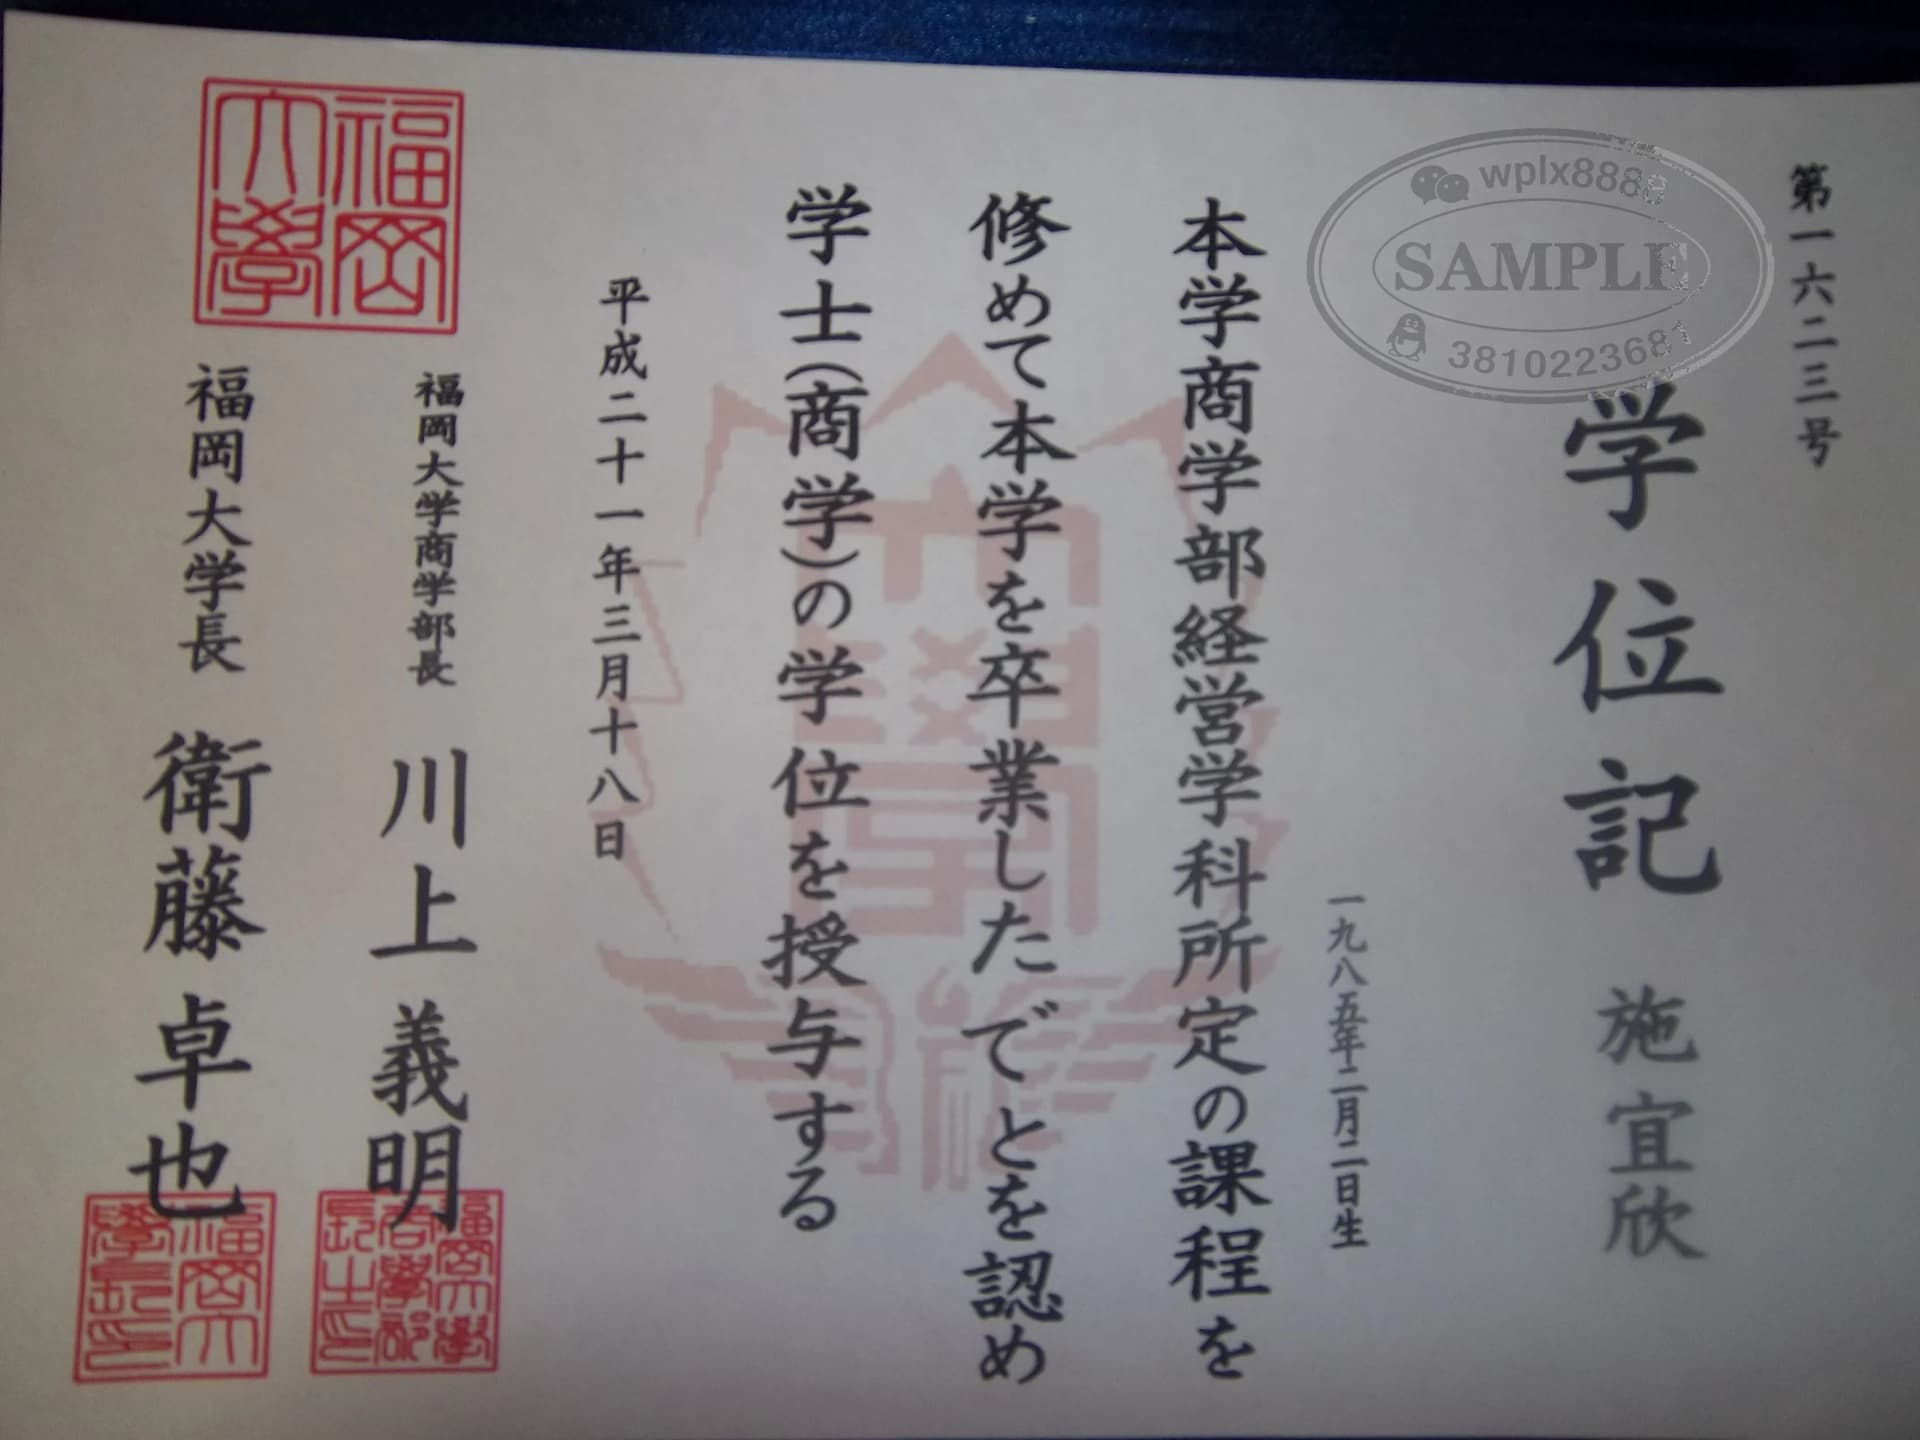 第一六二三号
学位記
施宜欣
一九八五年二月二日生
本学商学部経営学科所定の課程を
修めて本学を卒業したでとを認め
学士(商学)の学位を授与する
平成二十一年三月十八日
福岡大学商学部長 川上義明
福岡大学長 衛藤卓也
福岡大學
福岡大學商學部長之印
福岡大學長印
wplx8888
SAMPLE
3810223681